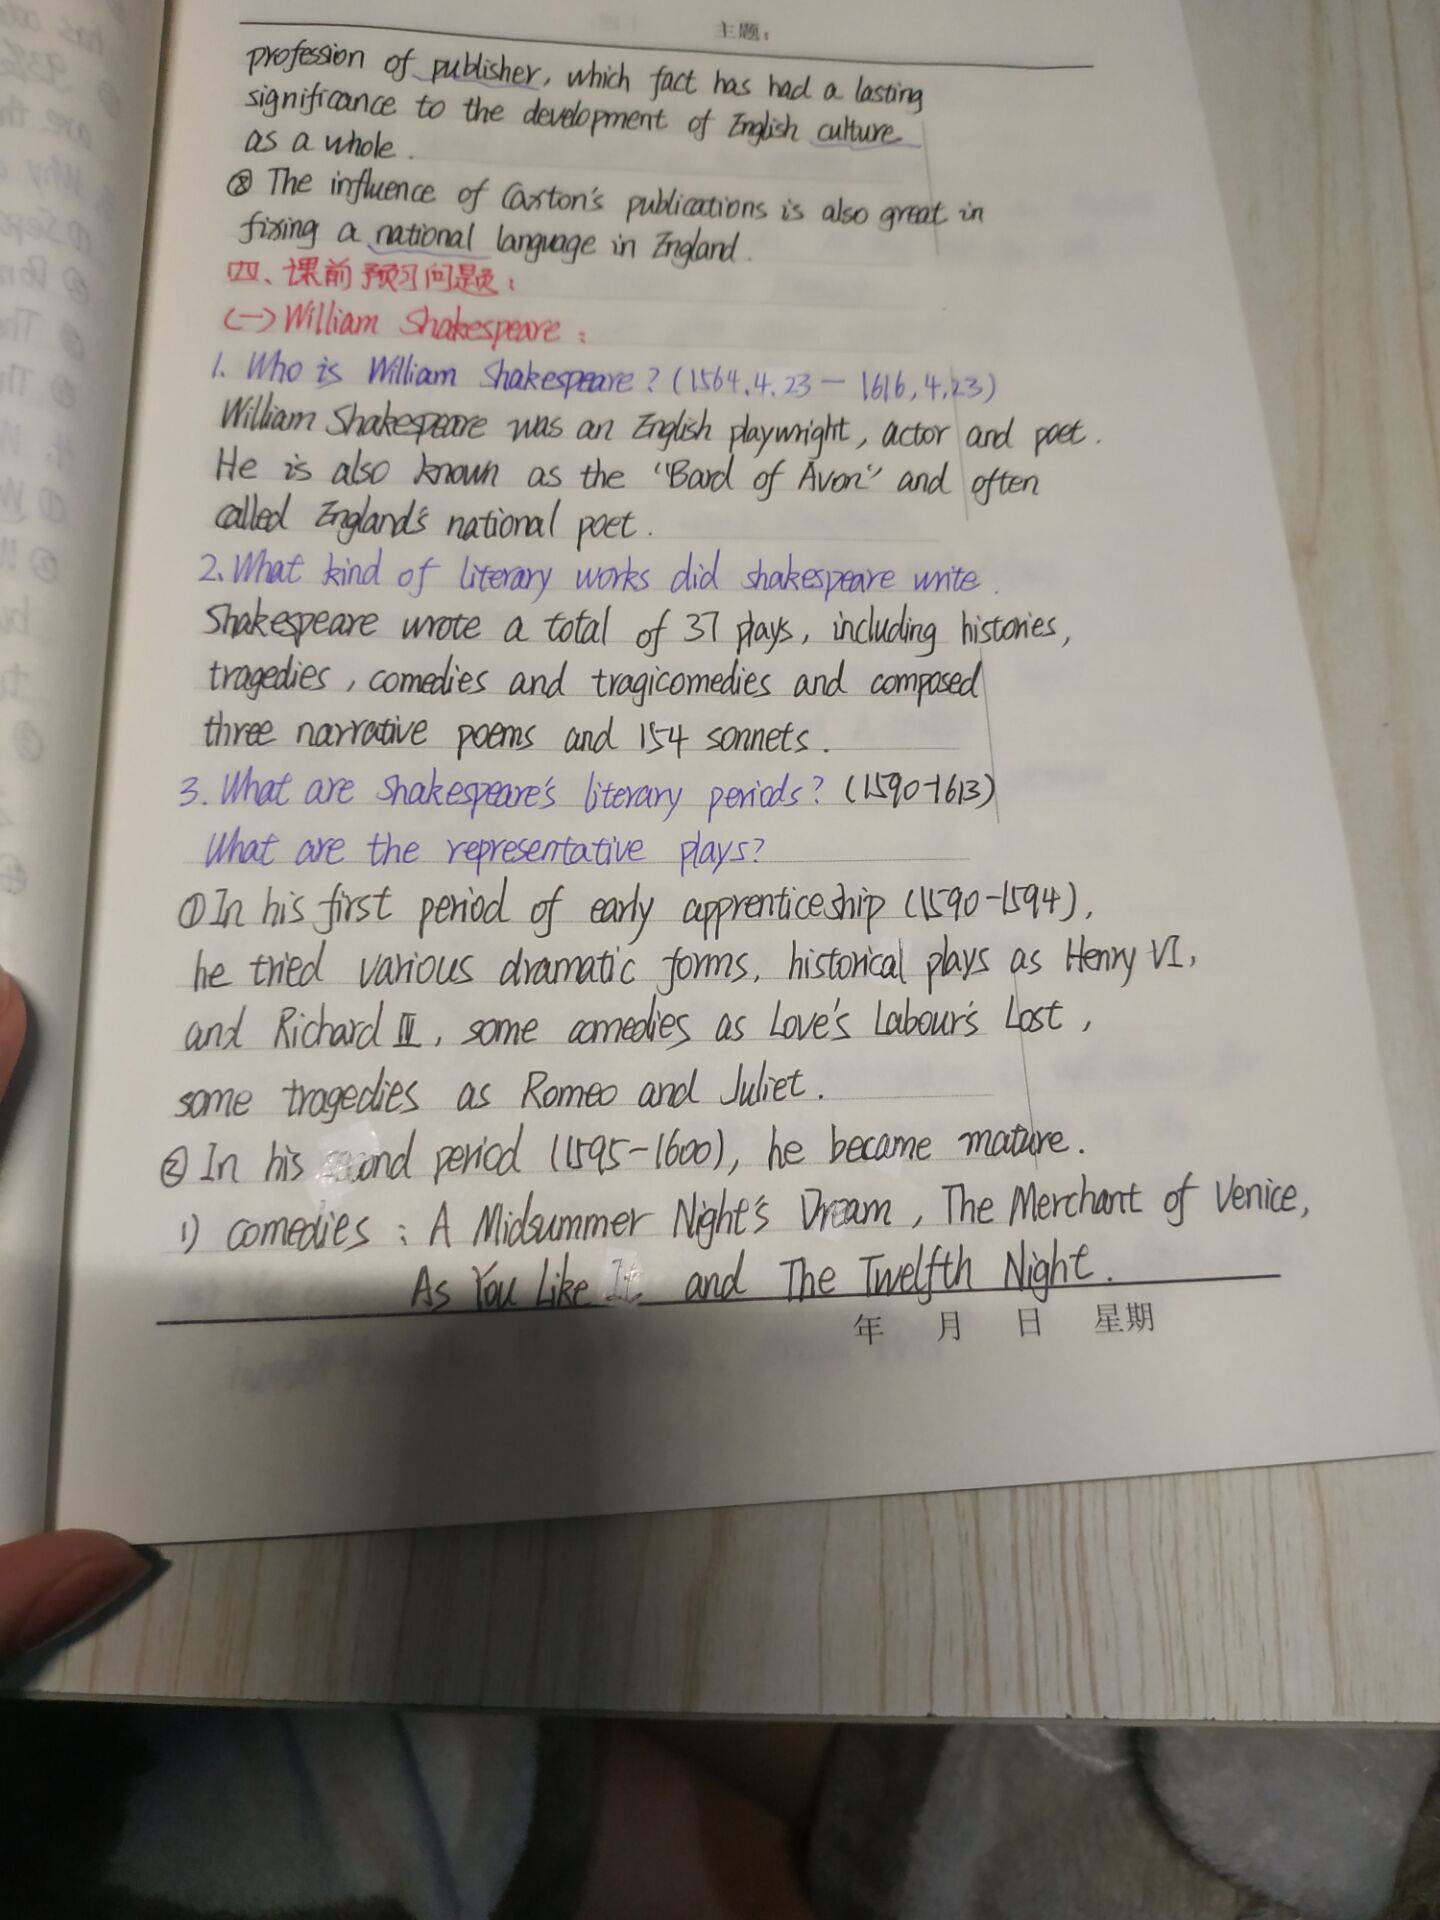 主题：
profession of publisher, which fact has had a lasting
significance to the development of English culture
as a whole.
⑧ The influence of Caxton's publications is also great in
fixing a national language in England.
四、课前预习问题：
(一) William Shakespeare：
1. Who is William Shakespeare? (1564.4.23—1616.4.23)
William Shakespeare was an English playwright, actor and poet.
He is also known as the "Bard of Avon" and often
called England's national poet.
2. What kind of literary works did shakespeare write.
Shakespeare wrote a total of 37 plays, including histories,
tragedies, comedies and tragicomedies and composed
three narrative poems and 154 sonnets.
3. What are Shakespeare's literary periods? (1590-1613)
What are the representative plays?
① In his first period of early apprenticeship (1590-1594),
he tried various dramatic forms, historical plays as Henry VI,
and Richard III, some comedies as Love's Labour's Lost,
some tragedies as Romeo and Juliet.
② In his second period (1595-1600), he became mature.
1) comedies: A Midsummer Night's Dream, The Merchant of Venice,
As You Like It and The Twelfth Night.
年 月 日 星期